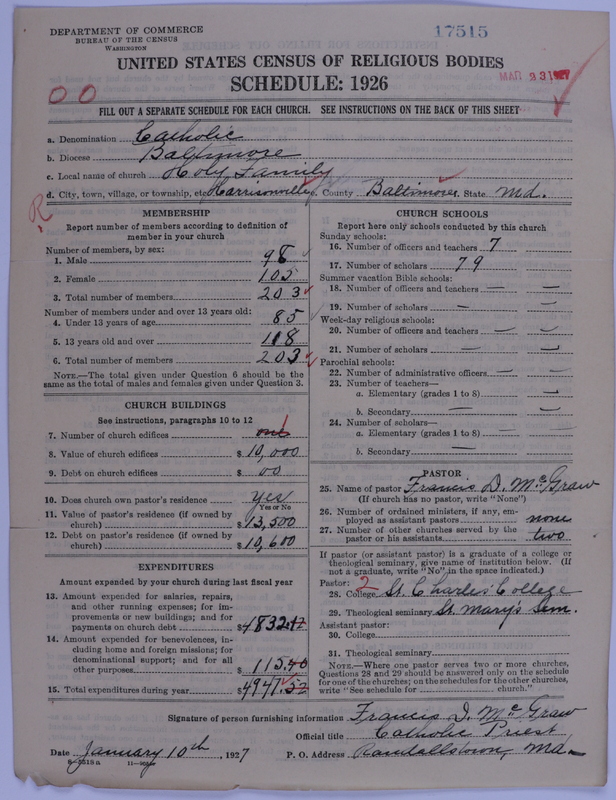 DEPARTMENT OF COMMERCE
BUREAU OF THE CENSUS
WASHINGTON
17515
UNITED STATES CENSUS OF RELIGIOUS BODIES
SCHEDULE: 1926
MAR 23 1927
00
FILL OUT A SEPARATE SCHEDULE FOR EACH CHURCH. SEE INSTRUCTIONS ON THE BACK OF THIS SHEET
a. Denomination Catholic
b. Diocese Baltimore
c. Local name of church Holy Family
d. City, town, village, or township, etc. Harrisonville County Baltimore State Md.
R
MEMBERSHIP
Report number of members according to definition of
member in your church
Number of members, by sex:
1. Male 98
2. Female 105
3. Total number of members 203
Number of members under and over 13 years old:
4. Under 13 years of age 85
5. 13 years old and over 118
6. Total number of members 203
NOTE.—The total given under Question 6 should be the
same as the total of males and females given under Question 3.
CHURCH BUILDINGS
See instructions, paragraphs 10 to 12
7. Number of church edifices one 1
8. Value of church edifices $10,000
9. Debt on church edifices $ 00
10. Does church own pastor's residence yes
Yes or No
11. Value of pastor's residence (if owned by
church) $13,500
12. Debt on pastor's residence (if owned by
church) $10,600
EXPENDITURES
Amount expended by your church during last fiscal year
13. Amount expended for salaries, repairs,
and other running expenses; for im-
provements or new buildings; and for
payments on church debt $4832.12
14. Amount expended for benevolences, in-
cluding home and foreign missions; for
denominational support; and for all
other purposes $115.40
15. Total expenditures during year $4947.52
CHURCH SCHOOLS
Report here only schools conducted by this church
Sunday schools:
16. Number of officers and teachers 7
17. Number of scholars 79
Summer vacation Bible schools:
18. Number of officers and teachers —
19. Number of scholars —
Week-day religious schools:
20. Number of officers and teachers —
21. Number of scholars —
Parochial schools:
22. Number of administrative officers —
23. Number of teachers—
a. Elementary (grades 1 to 8) —
b. Secondary —
24. Number of scholars—
a. Elementary (grades 1 to 8) —
b. Secondary —
PASTOR
25. Name of pastor Francis D. McGraw
(If church has no pastor, write "None")
26. Number of ordained ministers, if any, em-
ployed as assistant pastors none
27. Number of other churches served by the
pastor or his assistants two
If pastor (or assistant pastor) is a graduate of a college or
theological seminary, give name of institution below. (If
not a graduate, write "No" in the space indicated.)
Pastor: 2
28. College St. Charles College
29. Theological seminary St. Mary's Sem.
Assistant pastor:
30. College
31. Theological seminary
NOTE.—Where one pastor serves two or more churches,
Questions 28 and 29 should be answered only on the schedule
for one of the churches; on the schedules for the other churches,
write "See schedule for church."
Signature of person furnishing information Francis D. McGraw
Official title Catholic Priest
Date January 10th, 1927 P. O. Address Randallstown, Md.